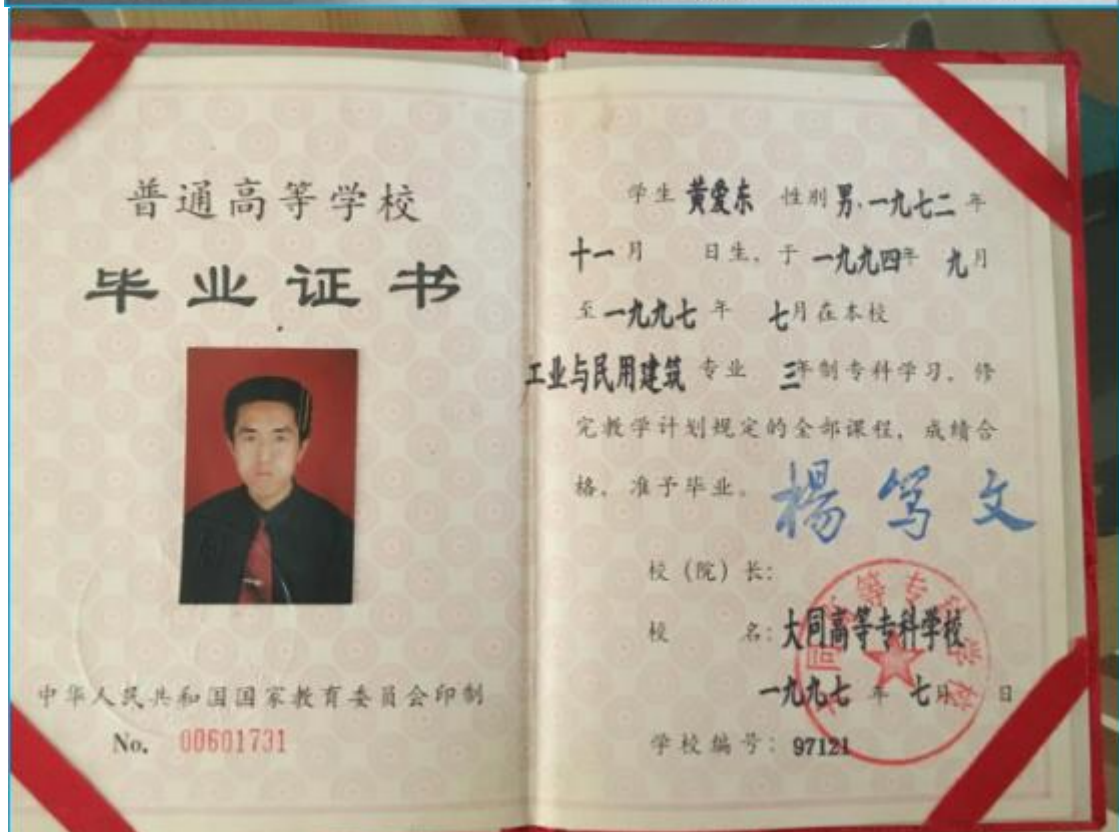 普通高等学校
毕业证书
中华人民共和国国家教育委员会印制
No. 00601731
学生 黄爱东 性别 男、一九七二 年
十一 月 日生, 于 一九九四年 九月
至 一九九七 年 七月在本校
工业与民用建筑 专业 三年制专科学习, 修
完教学计划规定的全部课程, 成绩合
格, 准予毕业。
楊笃文
校 (院) 长:
校 名: 大同高等专科学校
一九九七 年 七月 日
学校编号: 97121
大同高等专科学校